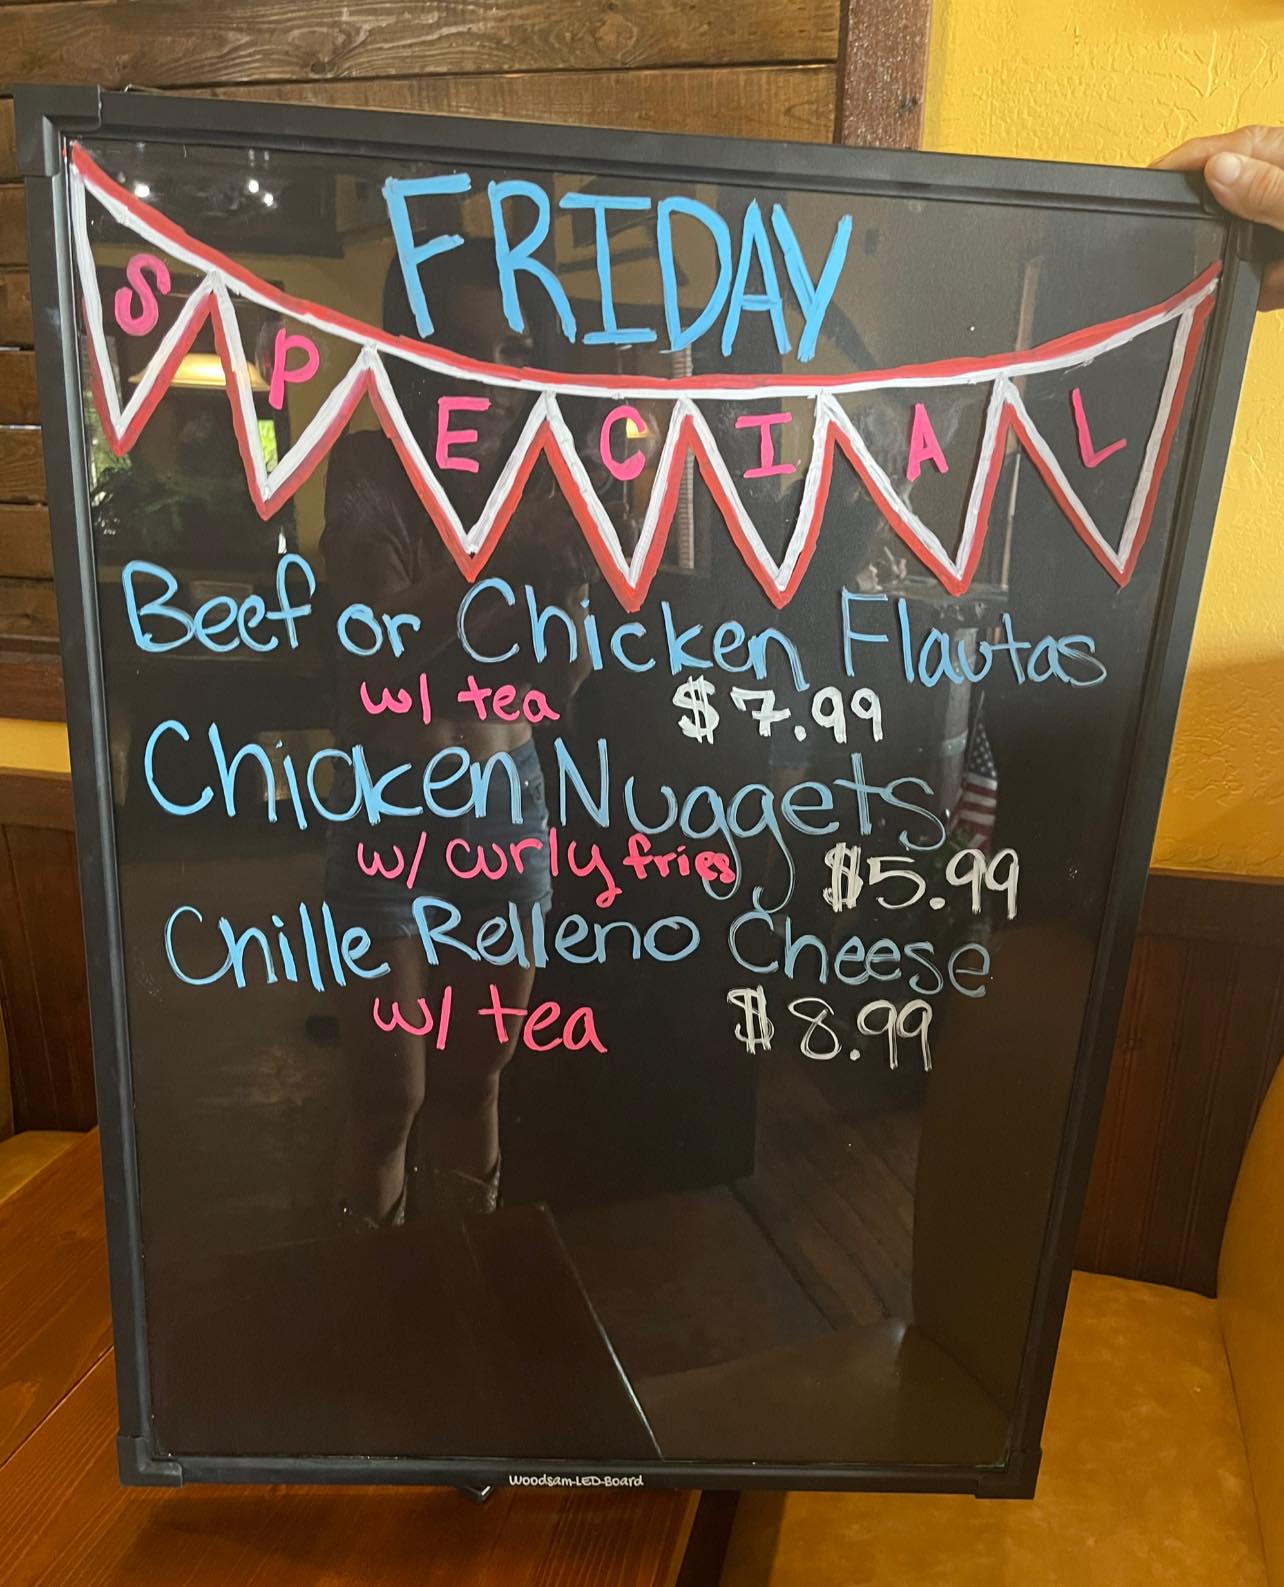 FRIDAY
SPECIAL
Beef or Chicken Flautas
w/ tea $7.99
Chicken Nuggets
w/ curly fries $5.99
Chille Relleno Cheese
w/ tea $8.99
Woodsam-LED-Board